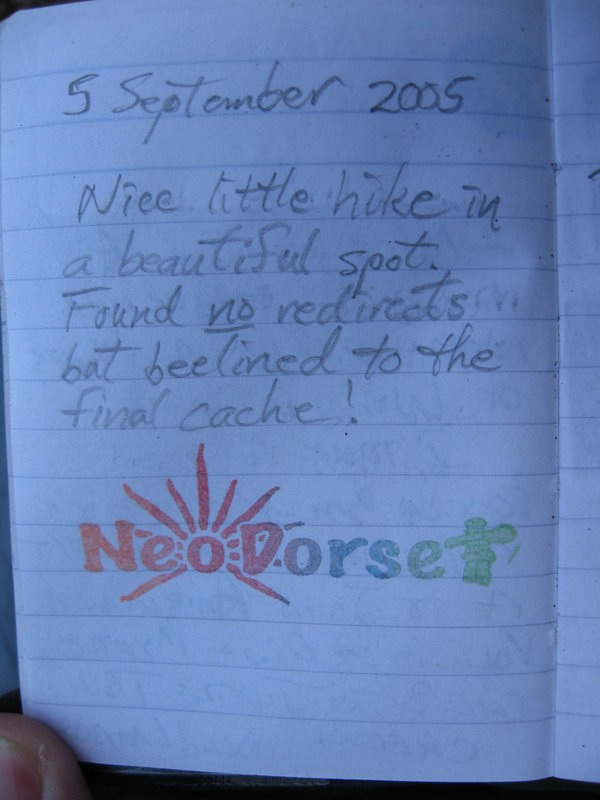 5 September 2005
Nice little hike in
a beautiful spot.
Found no redirects
but beelined to the
final cache!
NeoDorset